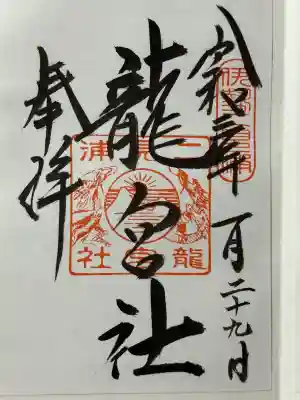 令和
年一月二十九日
龍宮社
奉拝
二見浦
龍宮社